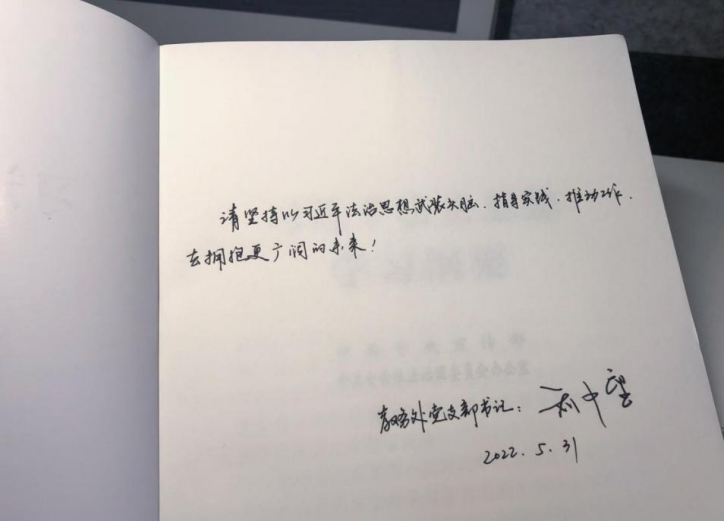 请坚持以习近平法治思想武装头脑、指导实践、推动工作,
去拥抱更广阔的未来!
教务处党支部书记:
2022.5.31